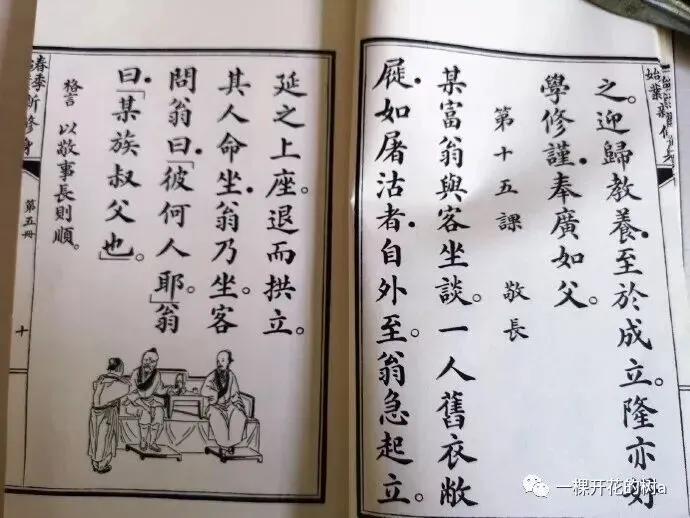 之。迎歸教養。至於成立。隆亦好
學修謹。奉廣如父。
第十五課 敬長
某富翁與客坐談。一人舊衣敝
屣。如屠沽者。自外至。翁急起立。
延之上座。退而拱立。
其人命坐。翁乃坐。客
問翁曰。「彼何人耶。」翁
曰。「某族叔父也。」
格言 以敬事長則順。
春季
新修身
第五冊
十
一棵开花的树a